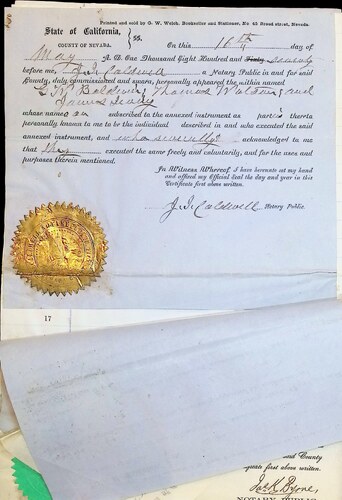 Printed and sold by G. W. Welch, Bookseller and Stationer, No. 43 Broad street, Nevada.
State of California, } ss.
COUNTY OF NEVADA.
On this 16th day of
May A. D. One Thousand Eight Hundred and Sixty seventy
before me, J. I. Caldwell a Notary Public in and for said
County, duly commissioned and sworn, personally appeared the within named
Baldwin, Thomas Watson, and
James
whose name subscribed to the annexed instrument as part thereto
personally known to me to be the individual described in and who executed the said
annexed instrument, and who severally acknowledged to me
that they executed the same freely and voluntarily, and for the uses and
purposes therein mentioned.
In Witness Whereof, I have hereunto set my hand
and affixed my Official Seal the day and year in this
Certificate first above written.
J. I. Caldwell Notary Public.
17
and County
first above written.
Jas K Byrne,
NOTARY PUBLIC